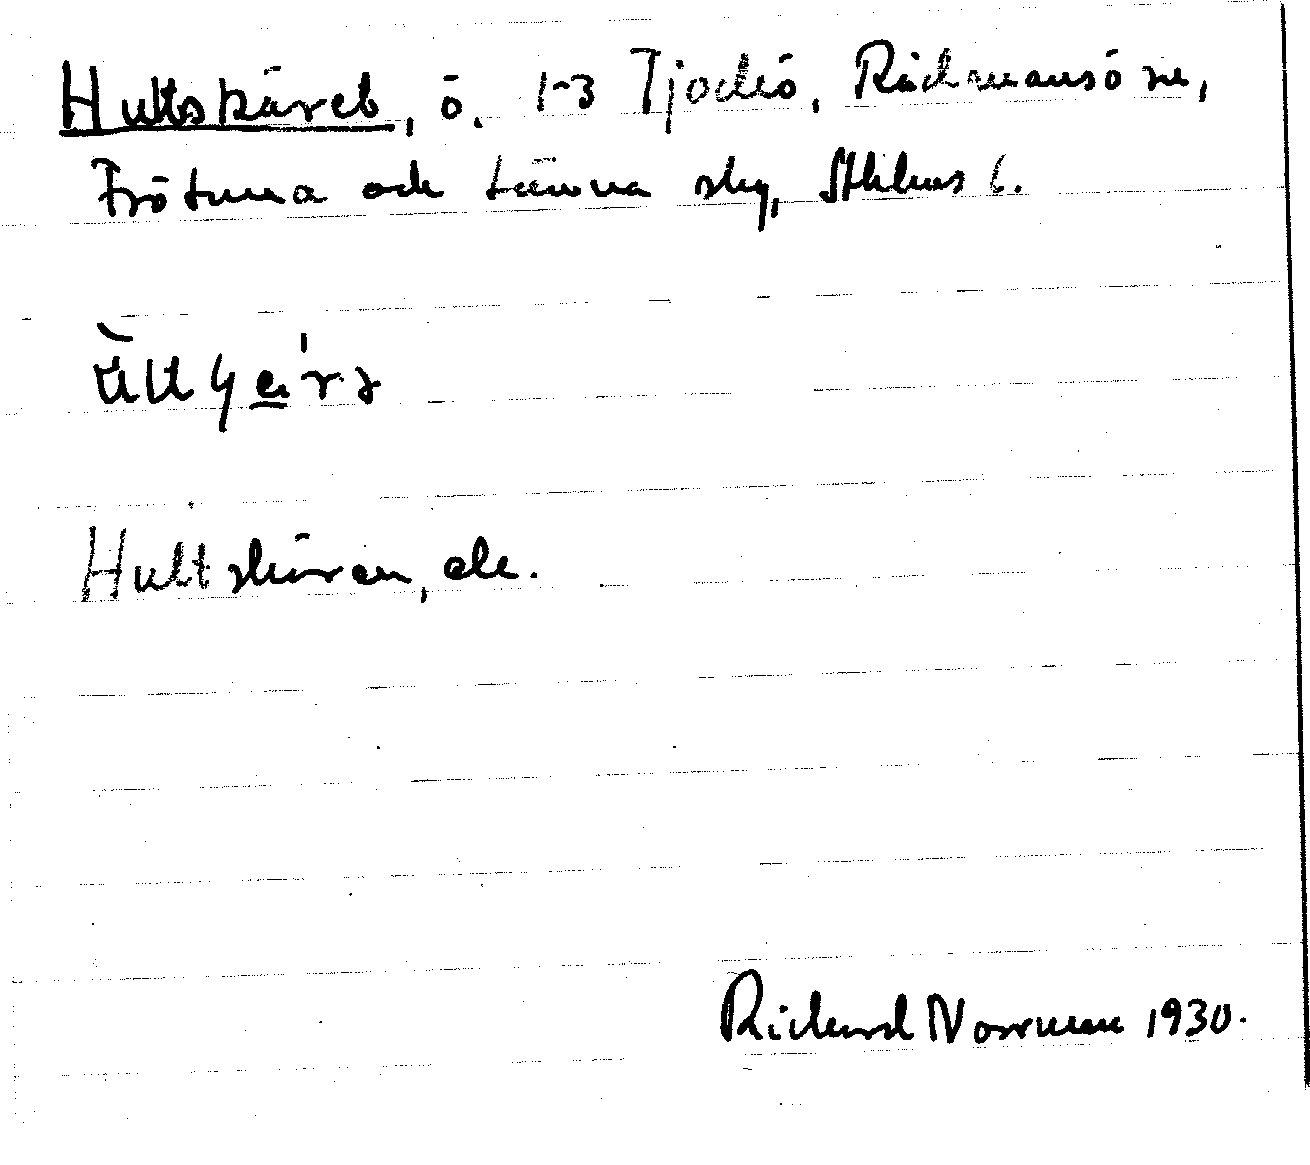 Hultskäret, ö. 1-3 Tjockö, Rådmansö sn,
Frötuna och Länna skg, Sthlms l.
Hultskären, ek.
Richard Norrman 1930.